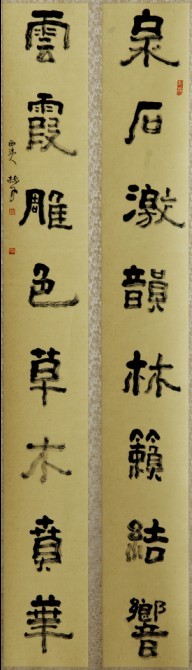 泉石激韻林籟結響
雲霞雕色草木賁華